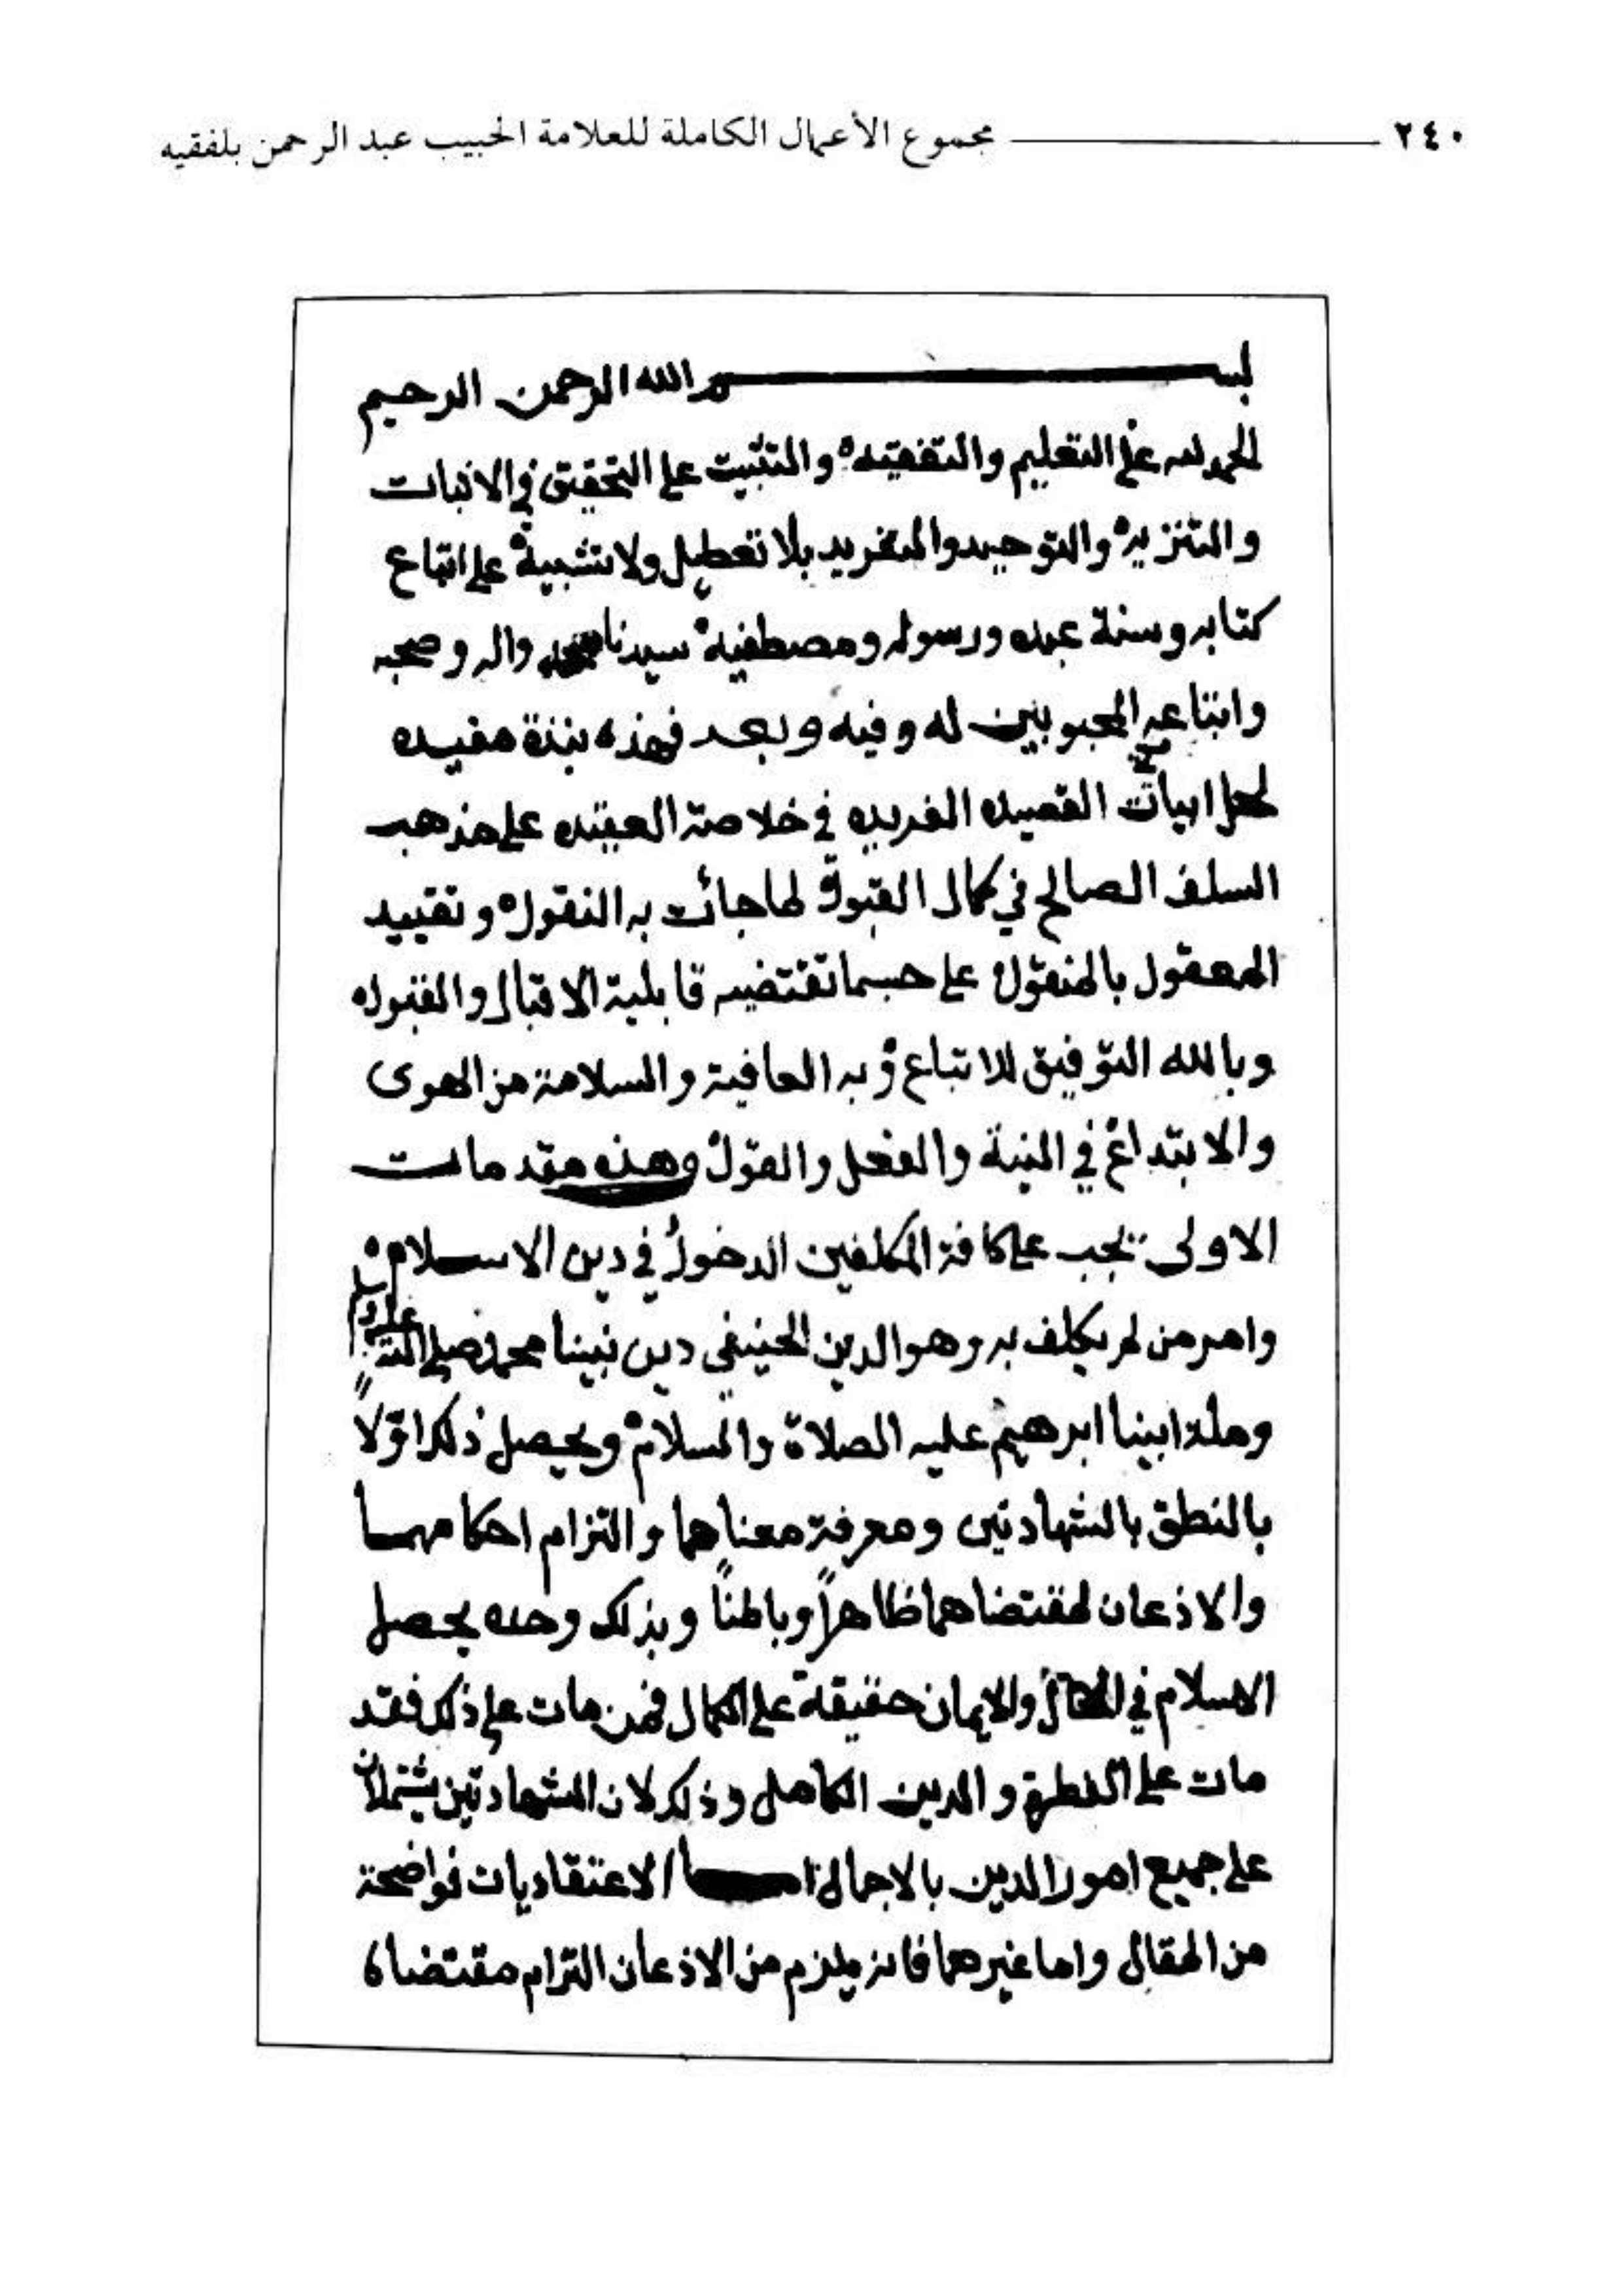 ٢٤٠ مجموع الأعمال الكاملة للعلامة الحبيب عبد الرحمن بلفقيه
بسم الله الرحمن الرحيم
الحمد لله على التعليم والتفقيه والتثبيت على التحقيق في الاثبات
والتنزيه والتوحيد والتفريد بلا تعطيل ولا تشبيه على اتباع
كتابه وسنة عبده ورسوله ومصطفيه سيدنا محمد واله وصحبه
واتباعه المحبوبين له وفيه وبعد فهذه نبذة مفيده
لحل ابيات القصيده الفريده في خلاصة العقيده على مذهب
السلف الصالح في كمال القبول لما جائت به النقول وتقييد
المعقول بالمنقول على حسب ما تقتضيه قابلية الاقبال والقبول
وبالله التوفيق للاتباع وبه العافية والسلامة من الهوى
والابتداع في النية والفعل والقول وهذه مقدمات
الاولى يجب على كافة المكلفين الدخول في دين الاسلام
وامر من لم يكلف به وهو الدين الحنيفي دين نبينا محمد صلى الله عليه وسلم
وملة ابينا ابرهيم عليه الصلاة والسلام ويحصل ذلك اوّلاً
بالنطق بالشهادتين ومعرفة معناهما والتزام احكامهما
والاذعان لمقتضاهما ظاهراً وباطناً وبذلك وحده يحصل
الاسلام في الحال والايمان حقيقة على الكمال فمن مات على ذلك فقد
مات على الفطرة والدين الكامل وذلك لان الشهادتين يشتملان
على جميع امور الدين بالاجمال اما الاعتقاديات فواضحة
من المقال واما غيرهما فانه يلزم من الاذعان التزام مقتضاه